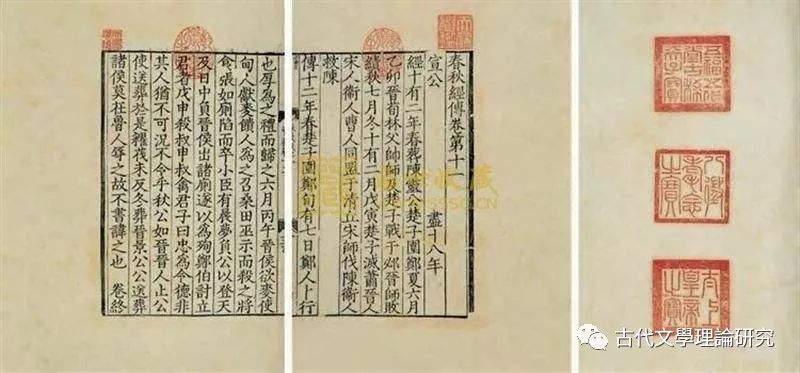 春秋經傳卷第十一
宣公 盡十八年
經十有二年春葬陳靈公楚子圍鄭夏六月
乙卯晉荀林父帥師及楚子戰于邲晉師敗
績秋七月冬十有二月戊寅楚子滅蕭晉人
宋人衞人曹人同盟于清丘宋師伐陳衞人
救陳
傳十二年春楚子圍鄭旬有七日鄭人卜行
也厚為之禮而歸之六月丙午晉侯欲麥使
甸人獻麥饋人為之召桑田巫示而殺之將
食張如廁陷而卒小臣有晨夢負公以登天
及日中負晉侯出諸廁遂以為殉鄭伯討立
君者戊申殺叔申叔禽君子曰忠為令德非
其人猶不可況不令乎秋公如晉晉人止公
使送葬於是糴茷未反冬葬晉景公公送葬
諸侯莫在魯人辱之故不書諱之也 卷終
八徵耄念之寶
太上皇帝之寶
古代文學理論研究